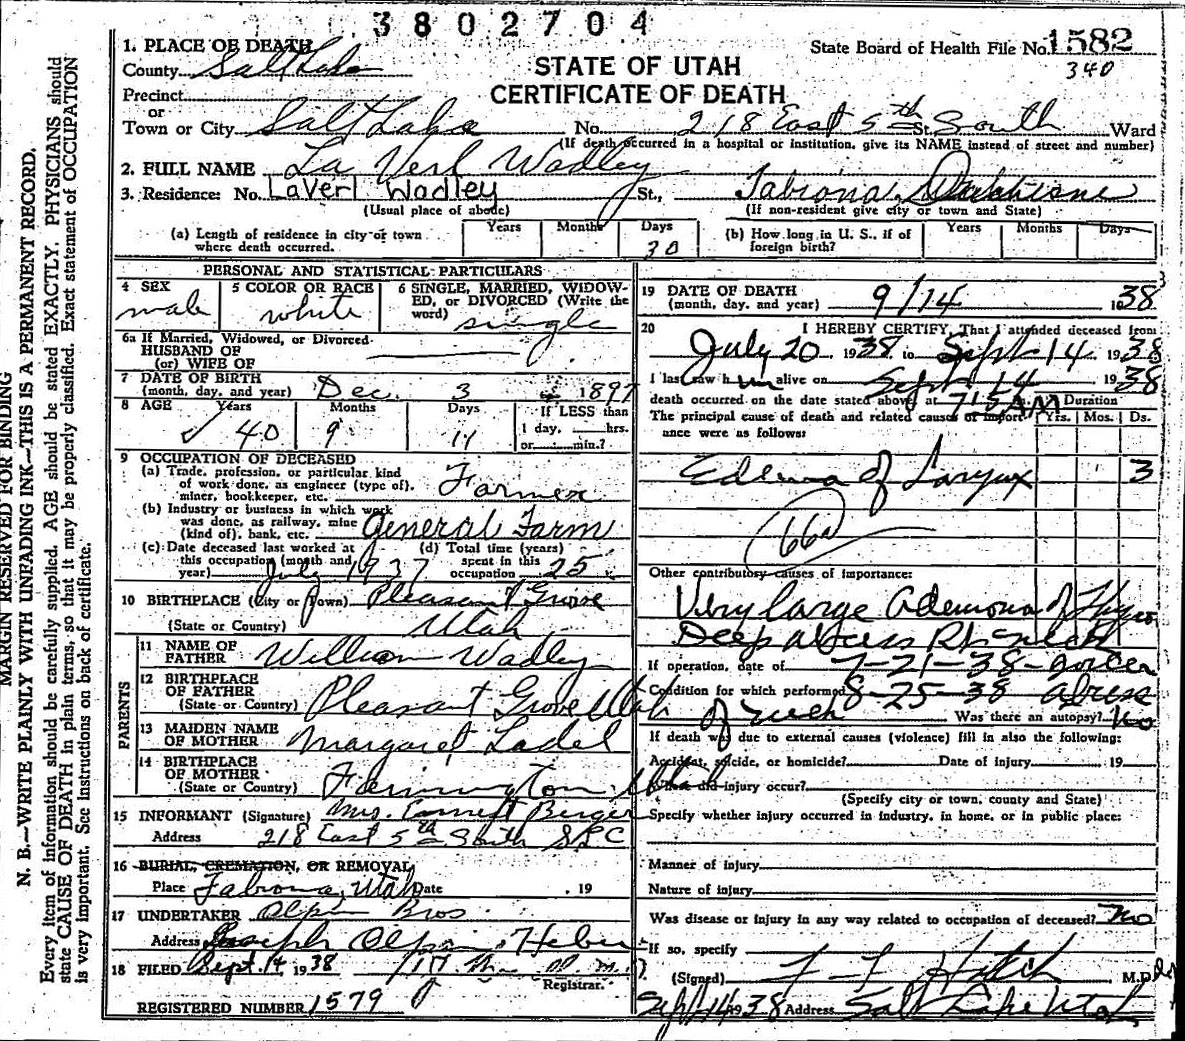 3802704
1. PLACE OF DEATH
State Board of Health File No. 1582
340
County Salt Lake
STATE OF UTAH
CERTIFICATE OF DEATH
Precinct
or
Town or City Salt Lake No. 218 East 5th St. South Ward
(If death occurred in a hospital or institution, give its NAME instead of street and number)
2. FULL NAME La Verl Wadley
3. Residence: No. LaVerl Wadley St., Tabiona,
(Usual place of abode) (If non-resident give city or town and State)
(a) Length of residence in city or town where death occurred. Years Months Days 30
(b) How long in U. S., if of foreign birth? Years Months Days
PERSONAL AND STATISTICAL PARTICULARS
4 SEX male
5 COLOR OR RACE white
6 SINGLE, MARRIED, WIDOWED, or DIVORCED (Write the word) single
6a If Married, Widowed, or Divorced
HUSBAND OF
(or) WIFE OF
7 DATE OF BIRTH
(month, day, and year) Dec. 3 1897
8 AGE Years 40 Months 9 Days 11 If LESS than 1 day, hrs. or min.?
9 OCCUPATION OF DECEASED
(a) Trade, profession, or particular kind of work done, as engineer (type of), miner, bookkeeper, etc. Farmer
(b) Industry or business in which work was done, as railway, mine (kind of), bank, etc. General Farm
(c) Date deceased last worked at this occupation (month and year) July 1937
(d) Total time (years) spent in this occupation 25
10 BIRTHPLACE (City or Town) Pleasant Grove
(State or Country) Utah
PARENTS
11 NAME OF FATHER William Wadley
12 BIRTHPLACE OF FATHER
(State or Country) Pleasant Grove Utah
13 MAIDEN NAME OF MOTHER Margaret
14 BIRTHPLACE OF MOTHER
(State or Country) Farmington Utah
15 INFORMANT (Signature) Mrs. Berger
Address 218 East 5th South SLC
16 BURIAL, CREMATION, OR REMOVAL
Place Tabiona, Utah Date , 19
17 UNDERTAKER Olpin Bros
Address Joseph Olpin Heber
18 FILED Sept. 14, 1938
Registrar.
REGISTERED NUMBER 1579
19 DATE OF DEATH
(month, day, and year) 9/14 1938
20 I HEREBY CERTIFY, That I attended deceased from
July 20 1938 to Sept 14 1938
I last saw him alive on Sept 14 1938
death occurred on the date stated above, at 7:15 AM. Duration
The principal cause of death and related causes of importance were as follows: Yrs. Mos. Ds.
Edema of Larynx 3
66a
Other contributory causes of importance:
Very large Adenoma of
Deep abcess Rt neck
If operation, date of 7-21-38-
Condition for which performed 8-25-38
of neck Was there an autopsy? No
If death was due to external causes (violence) fill in also the following:
Accident, suicide, or homicide? Date of injury , 19
Where did injury occur?
(Specify city or town, county and State)
Specify whether injury occurred in industry, in home, or in public place:
Manner of injury
Nature of injury
Was disease or injury in any way related to occupation of deceased? No
If so, specify
(Signed) Hatch M.D.
Sept 14 1938 Address Salt Lake Utah
MARGIN RESERVED FOR BINDING
N. B.—WRITE PLAINLY WITH UNFADING INK—THIS IS A PERMANENT RECORD.
Every item of information should be carefully supplied. AGE should be stated EXACTLY. PHYSICIANS should
state CAUSE OF DEATH in plain terms, so that it may be properly classified. Exact statement of OCCUPATION
is very important. See instructions on back of certificate.